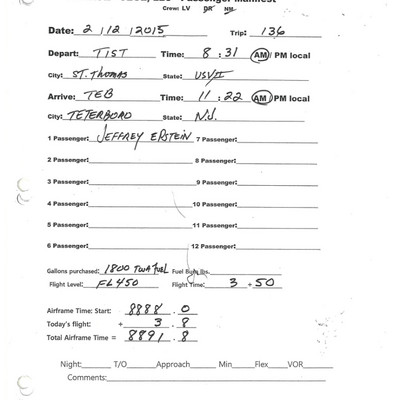 Passenger Manifest
Crew: LV DR NM
Date: 2 / 12 / 2015 Trip: 136
Depart: TIST Time: 8 : 31 AM / PM local
City: ST. THOMAS State: USVI
Arrive: TEB Time: 11 : 22 AM / PM local
City: TETERBORO State: N.J.
1 Passenger: JEFFREY EPSTEIN 7 Passenger:
2 Passenger: 8 Passenger:
3 Passenger: 9 Passenger:
4 Passenger: 10 Passenger:
5 Passenger: 11 Passenger:
6 Passenger: 12 Passenger:
Gallons purchased: 1800 FUEL Fuel lbs.
Flight Level: FL450 Flight Time: 3 + 50
Airframe Time: Start: 8888 . 0
Today's flight: + 3 . 8
Total Airframe Time = 8891 . 8
Night: T/O Approach Min Flex VOR
Comments: